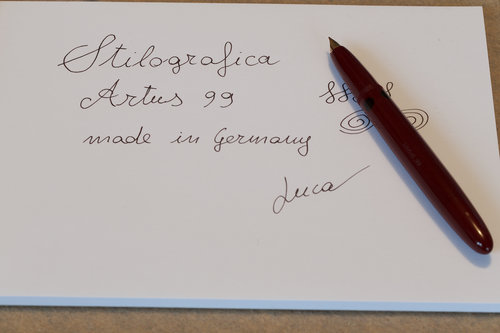 Stilografica
Artus 99
made in Germany
Luca